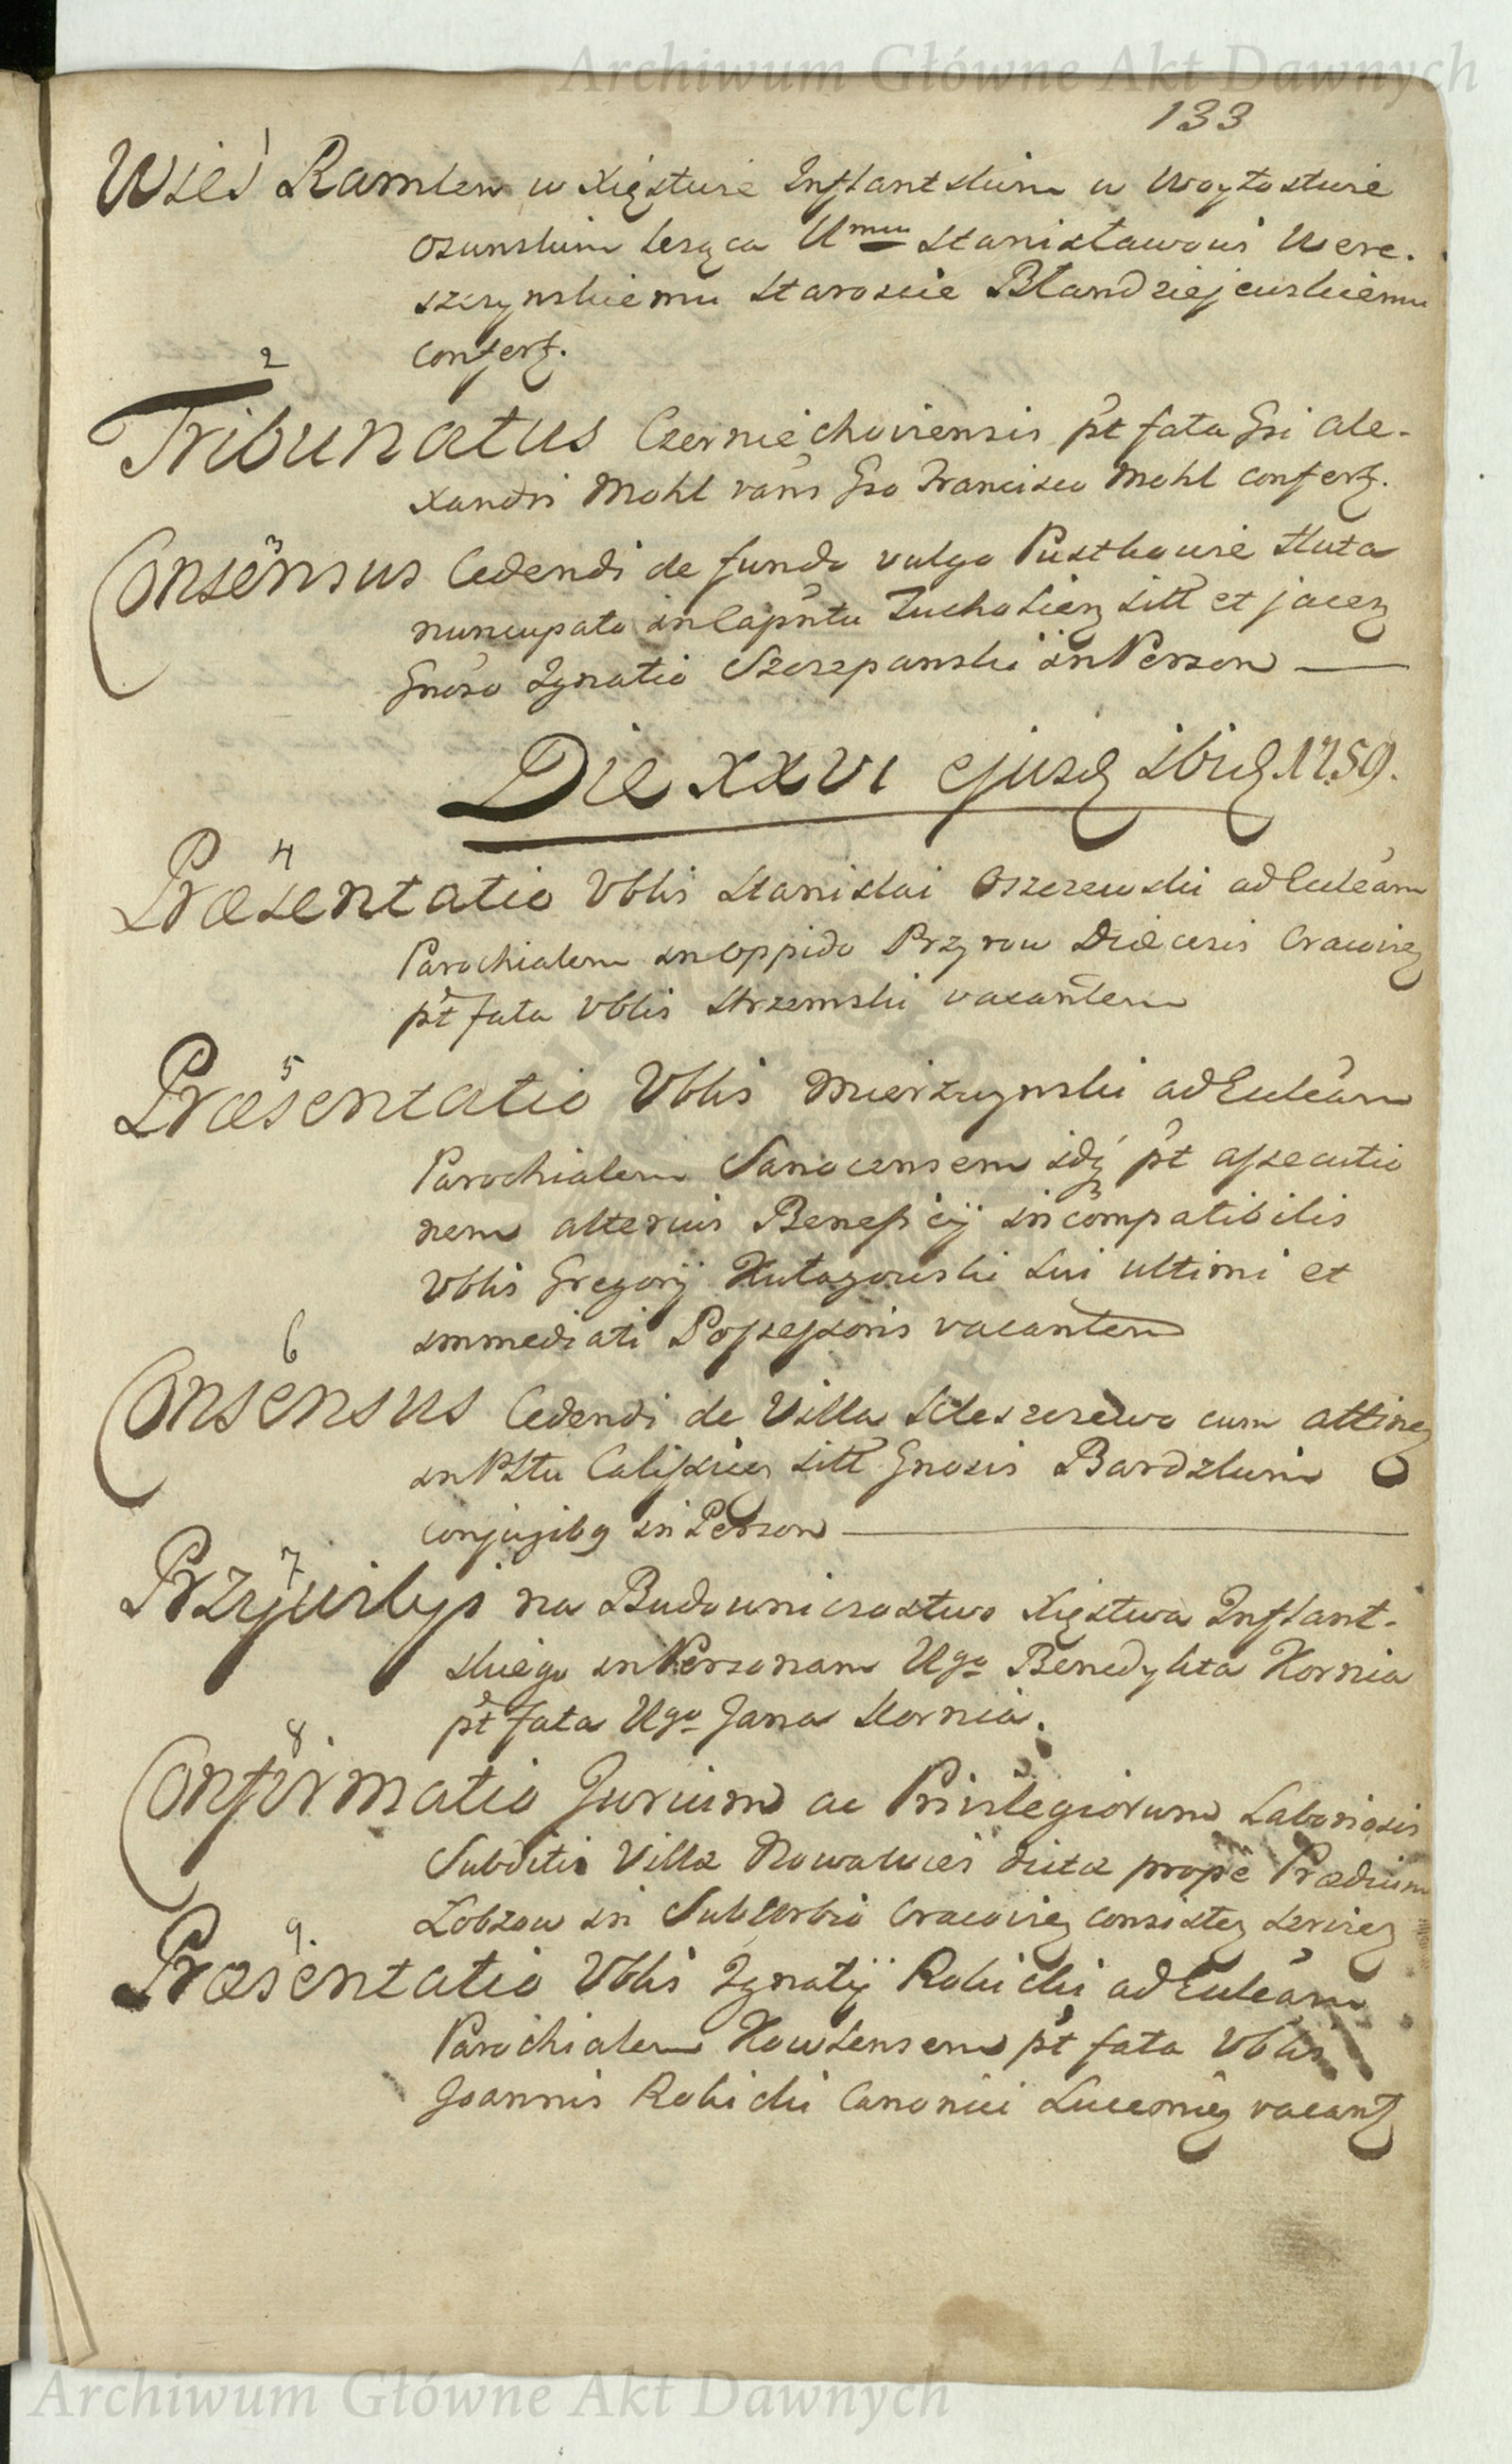 Archiwum Główne Akt Dawnych
133
1
Wieś Ramlew w Xięstwie Inflantskim w Woytostwie
Osunskim leząca Umu Stanisławowi Were-
szczynskiemu Staroscie Błandziejewskiemu
confert.
2
Tribunatus Czerniechoviensis pt fata Gsi Ale-
xandri Mohl vans Gso Francisco Mohl confert.
3
Consensus Cedendi de fundo vulgo Pustkowie Huta
nuncupato in Capntu Tucholien sitt et jacen
Gnoso Ignatio Szczepanski in Person
Die XXVI ejusd ibid 1759.
4
Præsentatio Vblis Stanislai Oszczewski ad Eccleam
Parochialem in Oppido Przyrow Diæcesis Cracovien
pt fata Vblis Strzemski vacantem
5
Præsentatio Vblis Mierzynski ad Eccleam
Parochialem Sanocensem idq pt assecutio
nem alterius Beneficij incompatibilis
Vblis Gregorij sui ultimi et
immediati Possessoris vacantem
6
Consensus Cedendi de Villa cum attinen
in Pttu Calissien sitt Gnosis Bardzkim
conjugibq in Person
7
Przywiley na Budowniczostwo Xięstwa Inflant-
skiego in Personam Ugo Benedykta Kornia
pt fata Ugo Jana Kornia.
8
Confirmatio Jurium ac Privilegiorum Laboriosis
Subditis Villæ Nowawieś dictæ prope Prædium
Lobzow in Suburbio Cracovien consisten servien
9.
Præsentatio Vblis Ignatij Robicki ad Eccleam
Parochialem Kowlensem pt fata Vblis
Joannis Robicki Canonici Luceorien vacant
Archiwum Główne Akt Dawnych